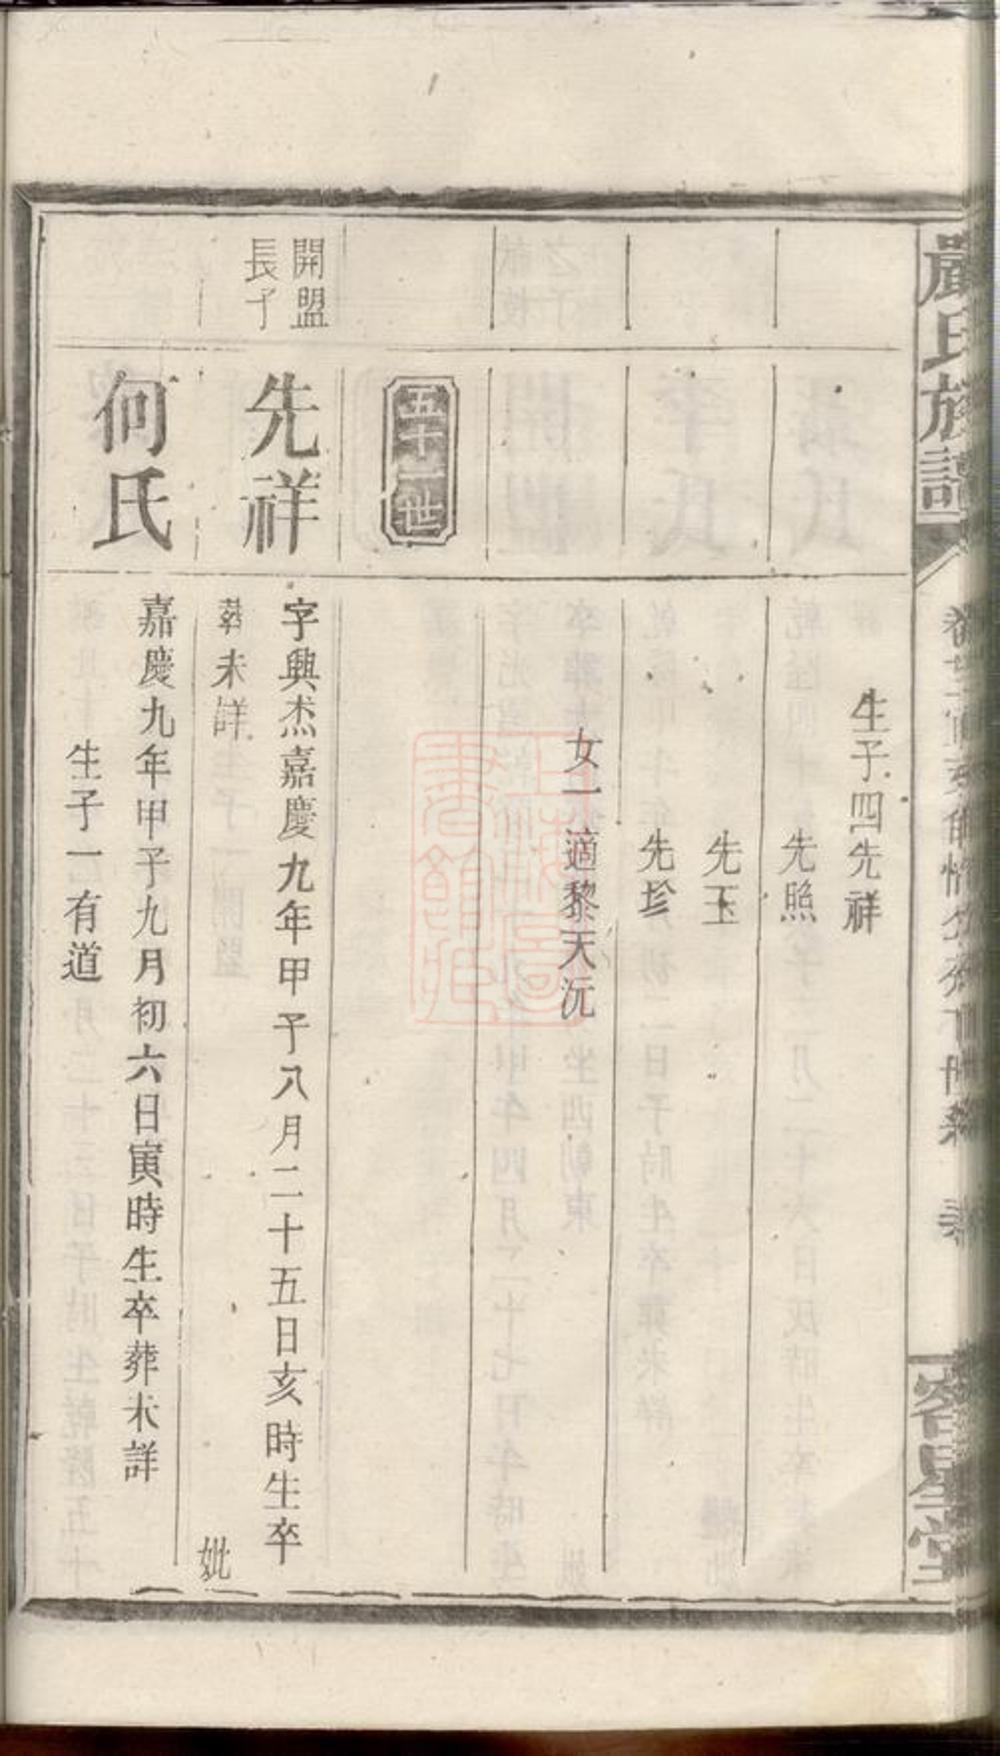 嚴氏族譜
客星堂
生子四先祥
先照
先玉
先珍
女一適黎天沅
五十二世
開盟
長子
先祥
字興杰嘉慶九年甲子八月二十五日亥時生卒
葬未詳 妣
何氏
嘉慶九年甲子九月初六日寅時生卒葬未詳
生子一有道